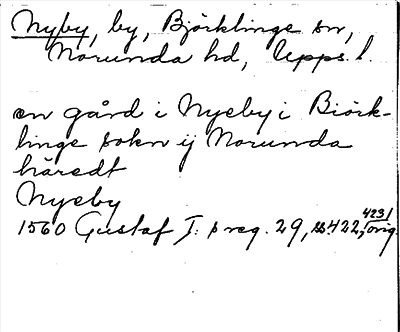 Nyby, by, Björklinge sn,
Norunda hd, Upps. l.
en gård i Nyeby i Biörk-
linge sokn ij Norunda
häredt
Nyeby
1560 Gustaf I: s reg. 29, s. 422, 423/orig.